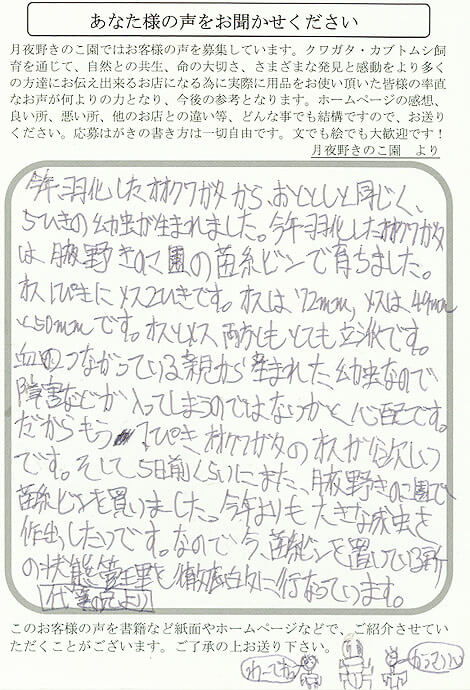 あなた様の声をお聞かせください
月夜野きのこ園ではお客様の声を募集しています。クワガタ・カブトムシ飼
育を通じて、自然との共生、命の大切さ、さまざまな発見と感動をより多く
の方達にお伝え出来るお店になる為に実際に用品をお使い頂いた皆様の率直
なお声が何よりの力となり、今後の参考となります。ホームページの感想、
良い所、悪い所、他のお店との違い等、どんな事でも結構ですので、お送り
ください。応募はがきの書き方は一切自由です。文でも絵でも大歓迎です！
月夜野きのこ園　より
今年、羽化したオオクワガタから、おととしと同じく、
5ひきの幼虫が生まれました。今年羽化したオオクワガタ
は、月夜野きのこ園の菌糸ビンで育ちました。
オス1ぴきに メス2ひきです。オスは 72mm, メスは 49mm
と50mmです。オスとメス、両方とも とても 立派です。
血のつながっている親から産まれた、幼虫なので
障害などが入ってしまうのではないかと、心配です。
だからもう 1ぴき、オオクワガタのオスが欲しい
です。そして5日前くらいにまた、月夜野きのこ園で
菌糸ビンを買いました。今年よりも大きな成虫を
作出したいです。なので今、菌糸ビンを置いている所
の状態管理を徹底的に行なっています。
このお客様の声を書籍など紙面やホームページなどで、ご紹介させてい
ただくことがございます。ご了承の上お送り下さい。